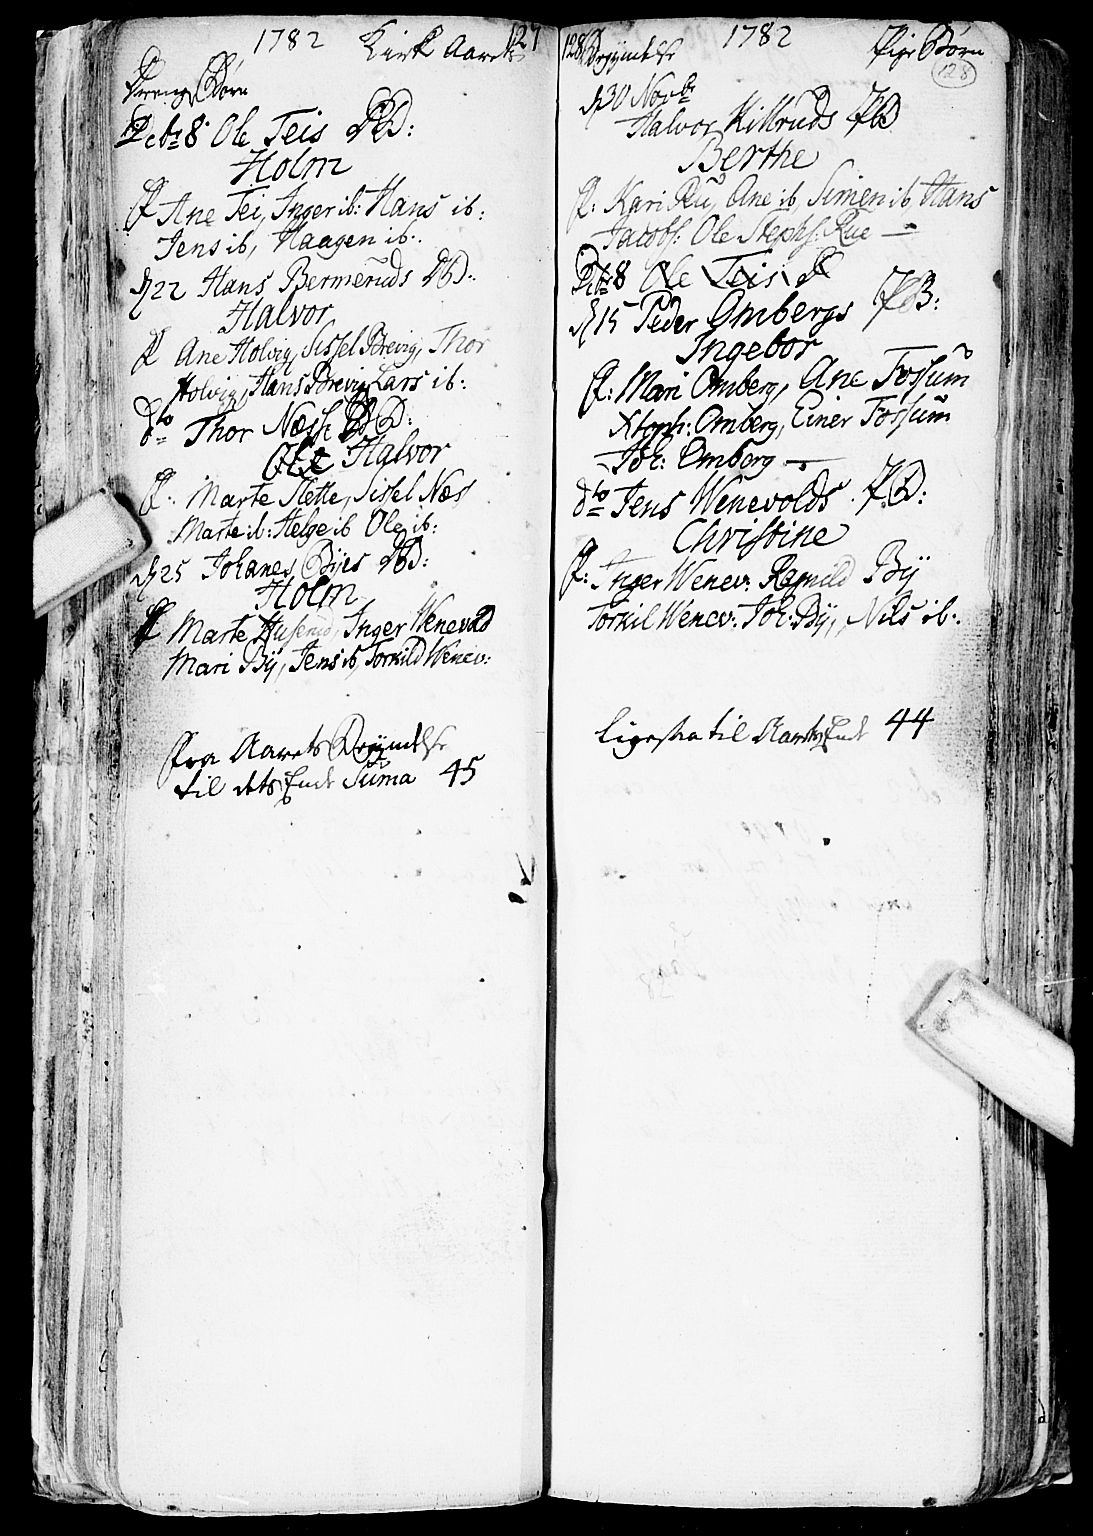 1782 Kirk Aarets 127
Drenge Børn
Decbr 8 Ole Teis DB:
Holm
f Ane Tei, Inger ib: Hans ib:
Jens ib, Haagen ib:
d 22 Hans Bermeruds DB:
Halvor
f Ane Holvig, Sissel Brevig, Thor
Holvig, Hans Brevig Lars ib:
dto Thor Næss DB:
Ole Halvor
f: Marte Slette, Sissel Næs
Marte ib: Helge ib Ole ib:
d 25 Johanes Byes DB:
Holm
f Marte Huserud, Inger Wenevold
Mari Bÿ, Jens ib, Torkild Wenev:
fra Aarets Begyndelse
til dets Ende Suma 45
128 Begyndelse 1782 Pige Børn
128
d 30 Novbr
Halvor Killruds PB
Berthe
f: Kari Ru, Ane ib, Simen ib Hans
Jacobs: Ole Stephs: Rue
Dcbr 8 Ole Teis
d 15 Peder Ombergs PB:
Ingebor
f: Mari Omberg, Ane Fossum
Xtoph: Omberg, Einer Fossum
Joh: Omberg
dto Jens Wenevolds PB:
Christine
f: Inger Wenev: Ragnild Bÿ
Torkil Wenev: Joh: Bÿ, Nils ib:
ligesaa til Aarets Ende 44